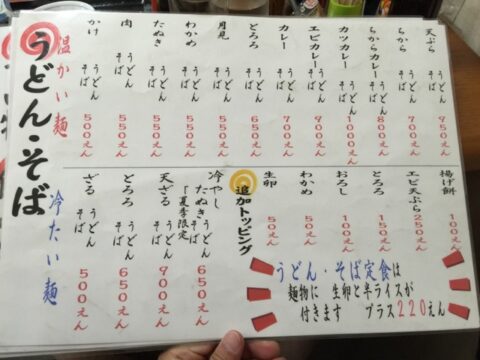 うどん・そば
温かい麺
かけ うどん そば 500えん
肉 うどん そば 550えん
たぬき うどん そば 550えん
わかめ うどん そば 550えん
月見 うどん そば 550えん
とろろ うどん そば 650えん
カレー うどん そば 700えん
エビカレー うどん そば 900えん
カツカレー うどん そば 1000えん
ちからカレー うどん そば 800えん
ちから うどん そば 700えん
天ぷら うどん そば 950えん
冷たい麺
ざる うどん そば 500えん
とろろ うどん そば 650えん
天ざる うどん そば 900えん
冷やしたぬき うどん そば 650えん
「夏季限定
追加トッピング
生卵 50えん
わかめ 50えん
おろし 100えん
とろろ 150えん
エビ天ぷら 250えん
揚げ餅 100えん
うどん・そば定食は
麺物に 生卵と半ライスが
付きます プラス220えん